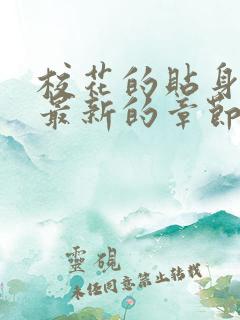 校花的貼身
最新的章節
靈硯
未经同意禁止转载